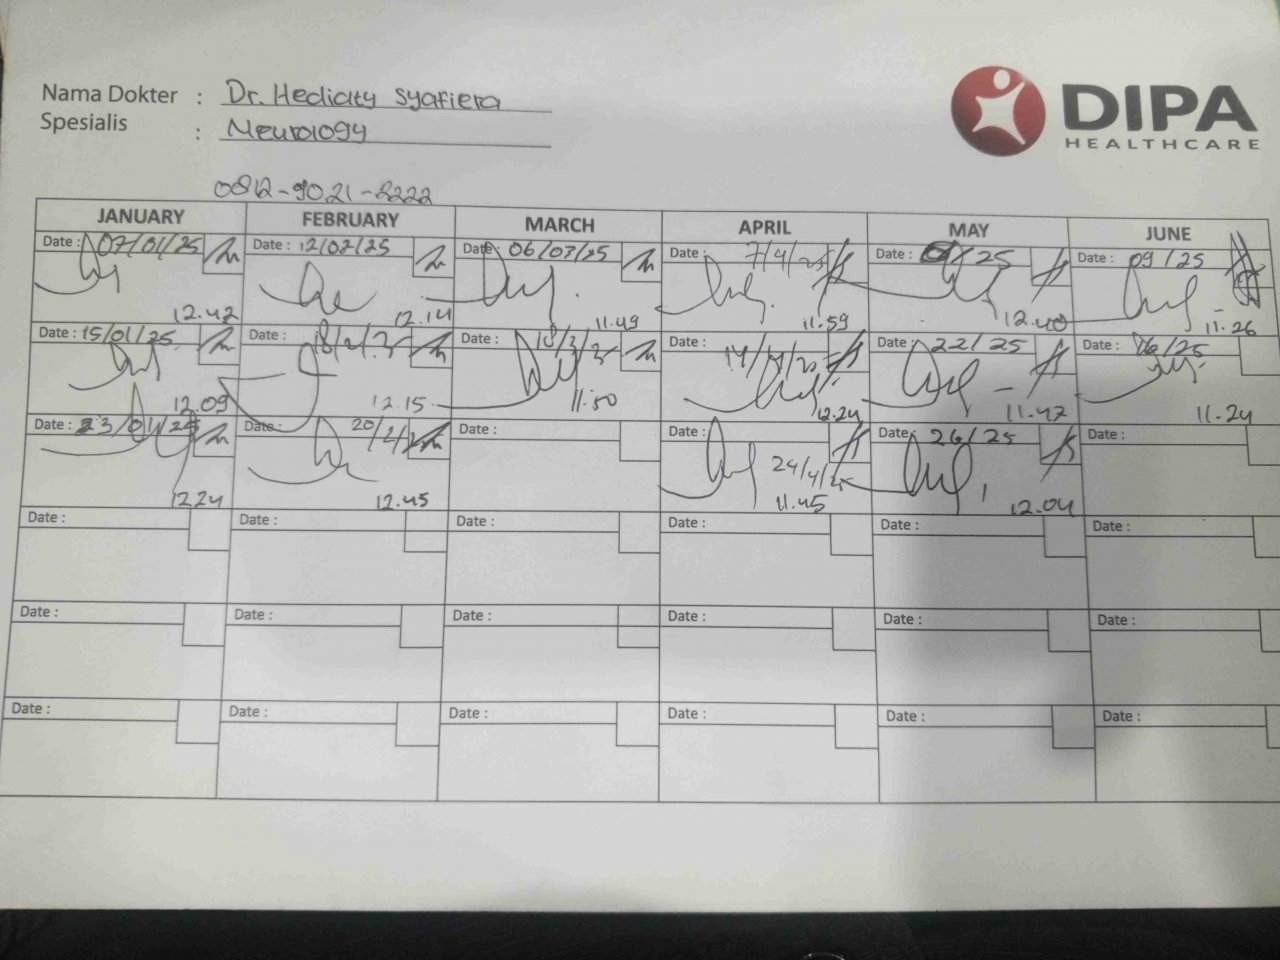 Nama Dokter : Dr. Hedicity Syafiera
Spesialis : Neurology
DIPA
HEALTHCARE
0812-9021-2222
JANUARY FEBRUARY MARCH APRIL MAY JUNE
Date : 07/01/25 Date : 12/02/25 Date : 06/03/25 Date : 7/4/25 Date : /25 Date : 09/25
12.42 12.14 11.49 11.59 12.40 11.26
Date : 15/01/25 Date : 18/2/ Date : 18/3/ Date : 14/4/25 Date : 22/25 Date : /25
12.09 12.15 11.50 12.24 11.47 11.24
Date : 23/01/25 Date : 20/2/ Date : Date : 24/4/25 Date : 26/25 Date :
12.24 12.45 11.45 12.04
Date : Date : Date : Date : Date : Date :
Date : Date : Date : Date : Date : Date :
Date : Date : Date : Date : Date : Date :